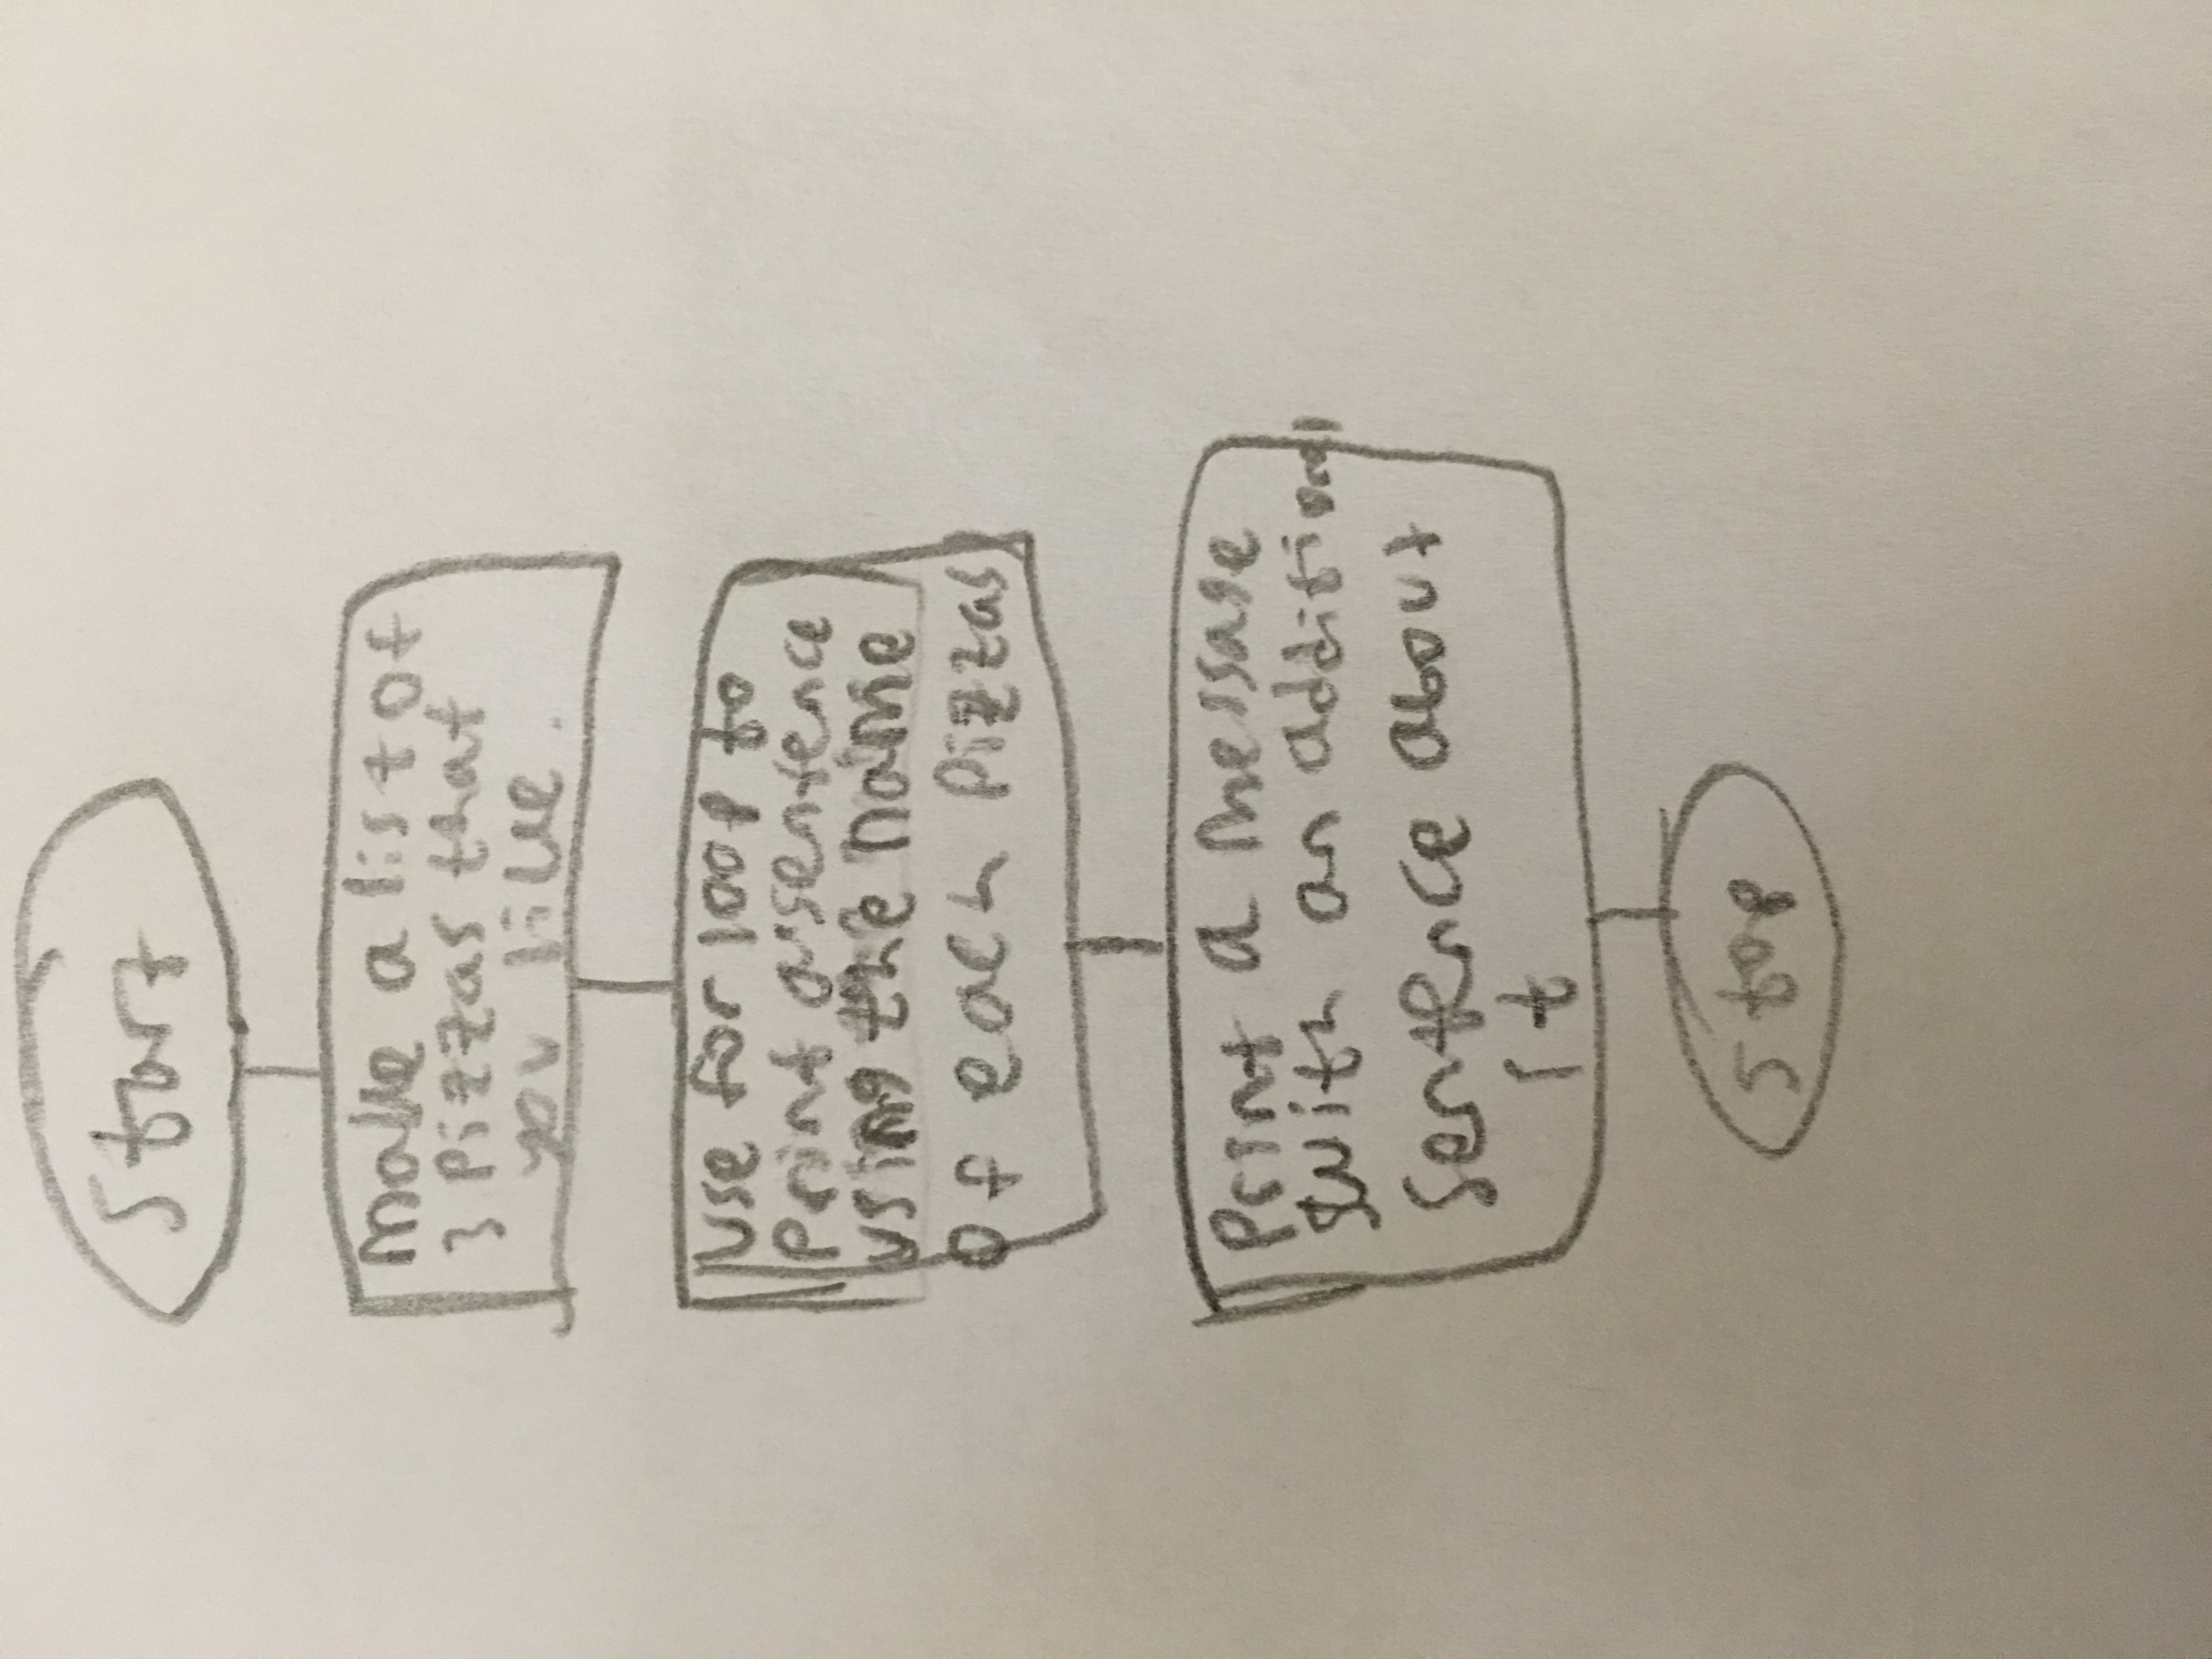 Start
Make a list of
3 Pizzas that
you like.
Use for loop to
Print a sentence
using the name
of each Pizzas
Print a message
with an additional
Sentence about
it
Stop